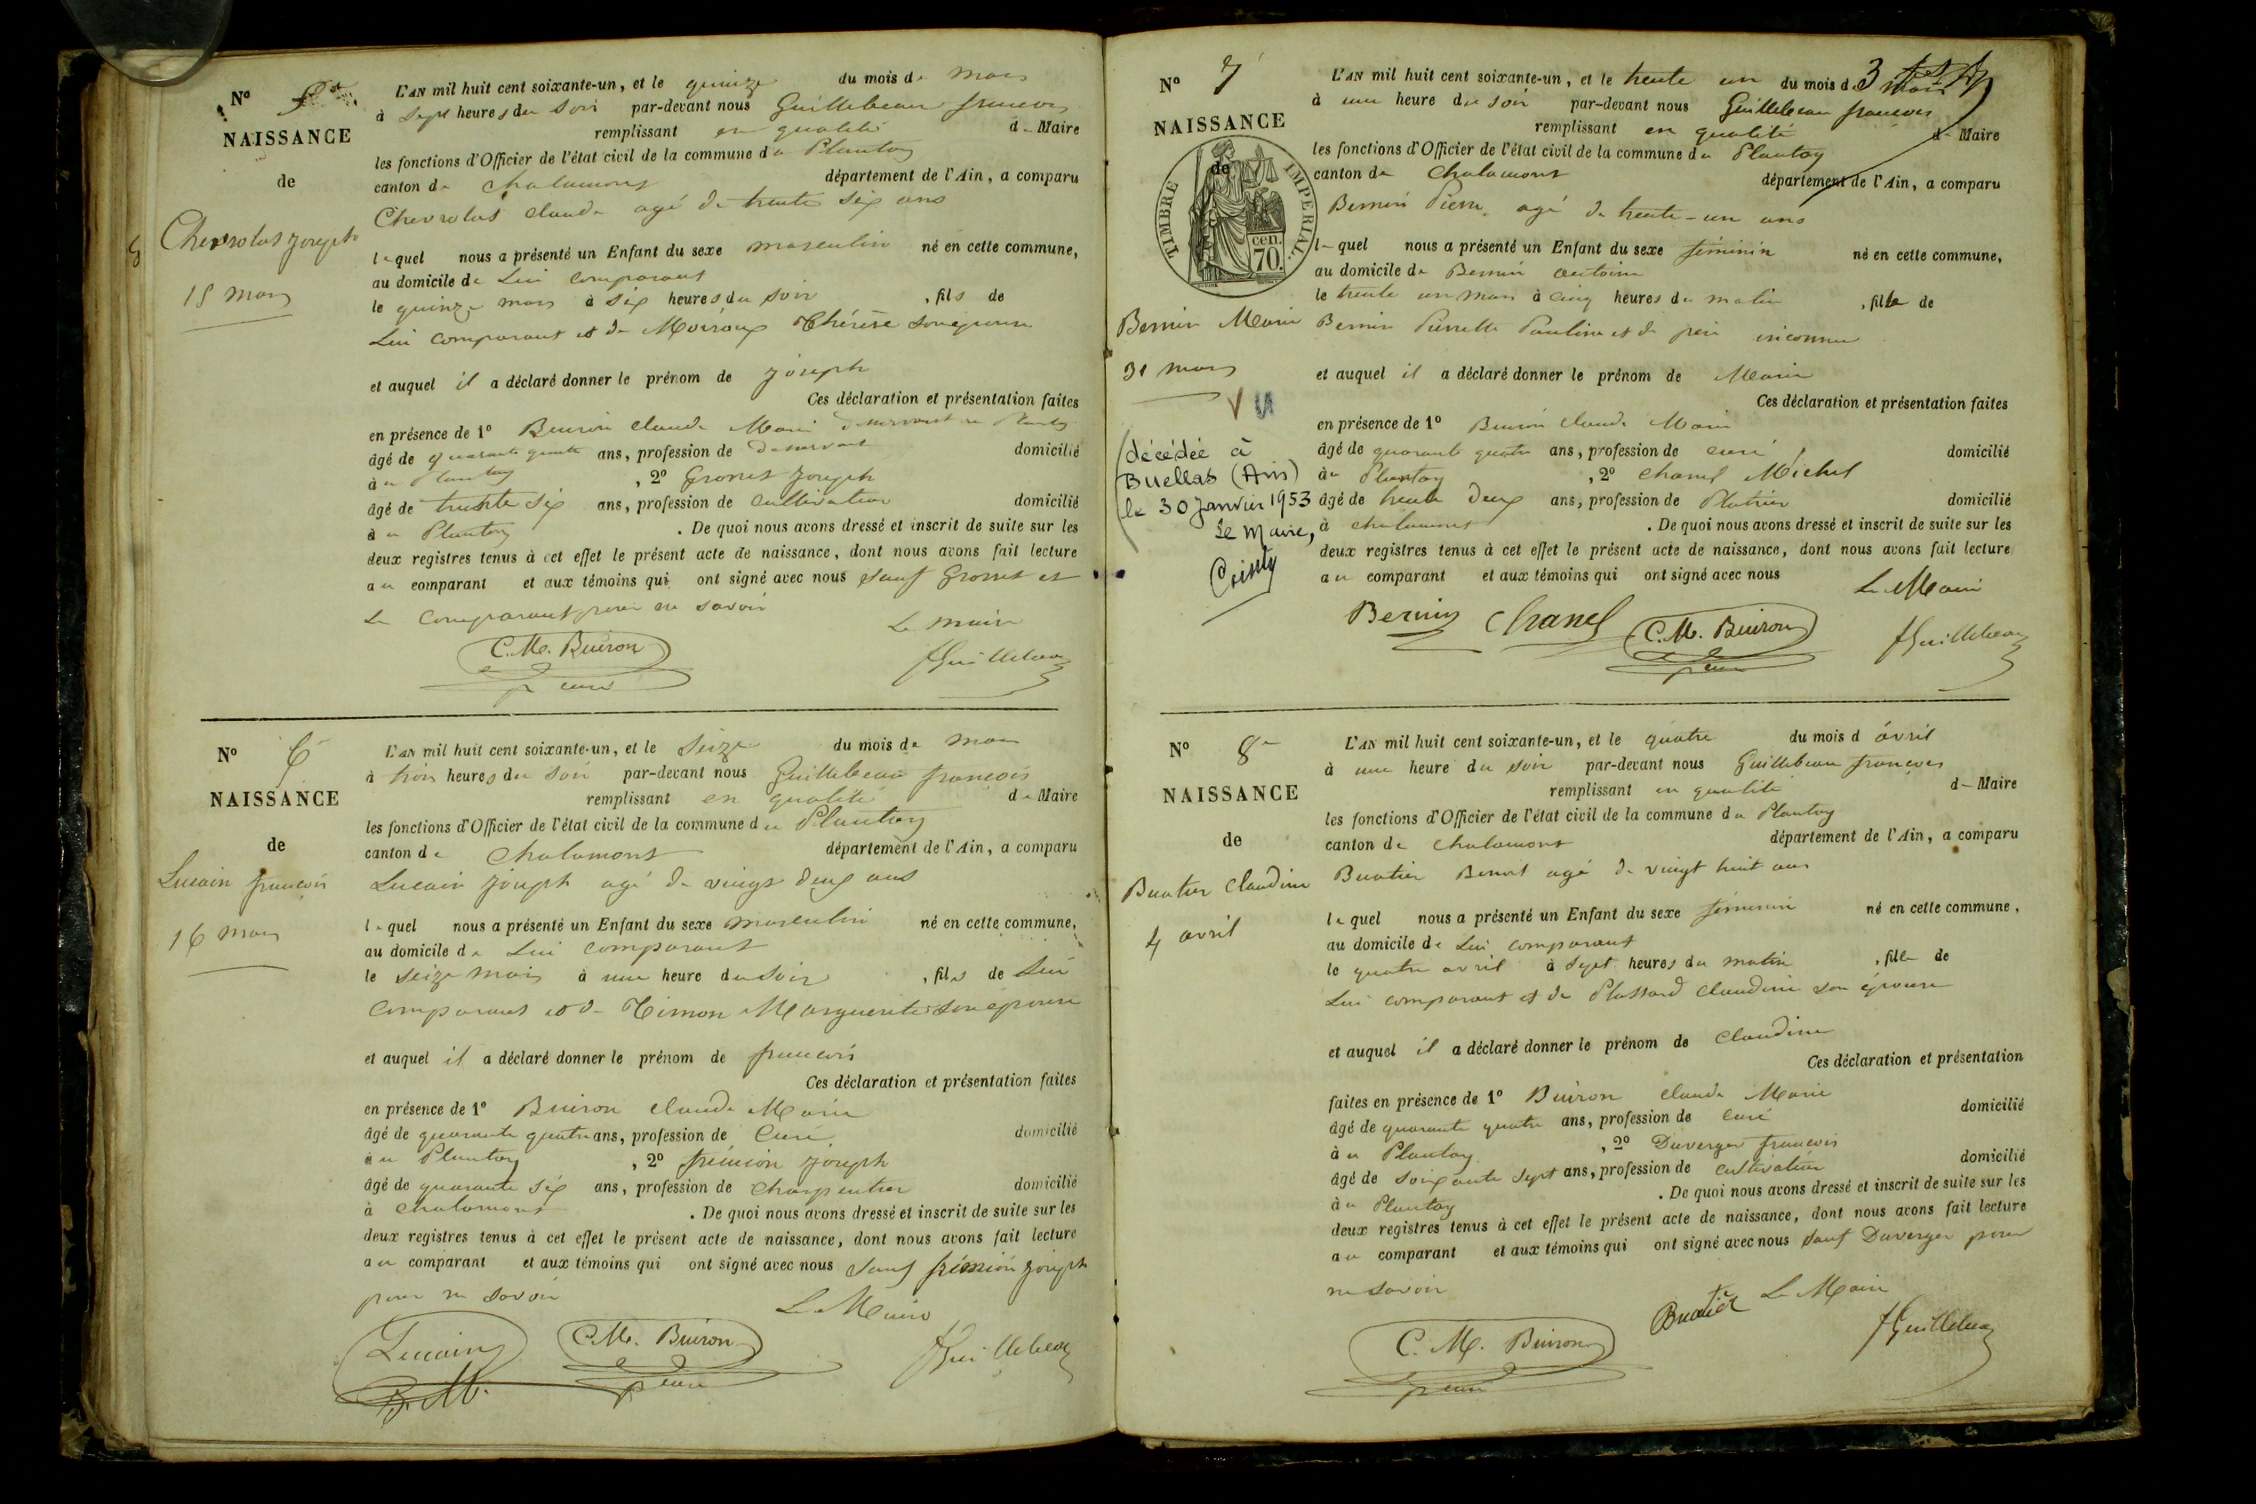 NAISSANCE
de
Chevrolat Joseph
15 mars
L'AN mil huit cent soixante-un, et le quinze du mois de mars
à sept heures du soir par-devant nous Guillebeau françois
remplissant en qualité de Maire
les fonctions d'Officier de l'état civil de la commune du Plantay
canton de Chalamont département de l'Ain, a comparu
Chevrolat Claude agé de trente six ans
lequel nous a présenté un Enfant du sexe masculin né en cette commune,
au domicile de Lui comparant
le quinze mars à six heures du soir, fils de
Lui comparant et de Moiroux Thérèse son épouse
et auquel il a déclaré donner le prénom de Joseph
Ces déclaration et présentation faites
en présence de 1° Buiron Claude Marie desservant au Plantay
âgé de quarante quatre ans, profession de desservant domicilié
au Plantay, 2° Joseph
âgé de trente six ans, profession de cultivateur domicilié
au Plantay. De quoi nous avons dressé et inscrit de suite sur les
deux registres tenus à cet effet le présent acte de naissance, dont nous avons fait lecture
au comparant et aux témoins qui ont signé avec nous sauf et
le comparant pour ne savoir
Le maire
C. M. Buiron
curé
fGuillebeau
N° 6
NAISSANCE
de
Lucain françois
16 mars
L'AN mil huit cent soixante-un, et le seize du mois de mars
à trois heures du soir par-devant nous Guillebeau françois
remplissant en qualité de Maire
les fonctions d'Officier de l'état civil de la commune du Plantay
canton de Chalamont département de l'Ain, a comparu
Lucain Joseph agé de vingt deux ans
lequel nous a présenté un Enfant du sexe masculin né en cette commune,
au domicile de Lui comparant
le seize mars à une heure du soir, fils de Lui
comparant et de Timon Marguerite son épouse
et auquel il a déclaré donner le prénom de françois
Ces déclaration et présentation faites
en présence de 1° Buiron Claude Marie
âgé de quarante quatre ans, profession de Curé domicilié
au Plantay, 2° frémion Joseph
âgé de quarante six ans, profession de charpentier domicilié
à Chalamont. De quoi nous avons dressé et inscrit de suite sur les
deux registres tenus à cet effet le présent acte de naissance, dont nous avons fait lecture
au comparant et aux témoins qui ont signé avec nous sauf frémion Joseph
pour ne savoir
Le Maire
Lucain
C. M. Buiron
curé
fGuillebeau
N° 7
NAISSANCE
de
TIMBRE IMPERIAL
cen.
70.
Bernin Marie
31 mars
VU
décédée à
Buellas (Ain)
le 30 Janvier 1953
Le Maire,
L'AN mil huit cent soixante-un, et le trente un du mois de mars
à une heure du soir par-devant nous Guillebeau françois
remplissant en qualité de Maire
les fonctions d'Officier de l'état civil de la commune du Plantay
canton de Chalamont département de l'Ain, a comparu
Bernin Pierre, agé de trente-un ans
lequel nous a présenté un Enfant du sexe féminin né en cette commune,
au domicile de Bernin antoine
le trente un mars à cinq heures du matin, fille de
Bernin Pierrette Pauline et de père inconnu
et auquel il a déclaré donner le prénom de Marie
Ces déclaration et présentation faites
en présence de 1° Buiron Claude Marie
âgé de quarante quatre ans, profession de curé domicilié
au Plantay, 2° Chanel Michel
âgé de trente deux ans, profession de Platrier domicilié
à chalamont. De quoi nous avons dressé et inscrit de suite sur les
deux registres tenus à cet effet le présent acte de naissance, dont nous avons fait lecture
au comparant et aux témoins qui ont signé avec nous
Le Maire
Bernin Chanel C. M. Buiron
curé
fGuillebeau
N° 8
NAISSANCE
de
Buatier Claudine
4 avril
L'AN mil huit cent soixante-un, et le quatre du mois d'avril
à une heure du soir par-devant nous Guillebeau françois
remplissant en qualité de Maire
les fonctions d'Officier de l'état civil de la commune du Plantay
canton de Chalamont département de l'Ain, a comparu
Buatier Benoit agé de vingt huit ans
lequel nous a présenté un Enfant du sexe féminin né en cette commune,
au domicile de Lui comparant
le quatre avril à sept heures du matin, fille de
Lui comparant et de Plassard Claudine son épouse
et auquel il a déclaré donner le prénom de Claudine
Ces déclaration et présentation
faites en présence de 1° Buiron Claude Marie
âgé de quarante quatre ans, profession de curé domicilié
au Plantay, 2° Duverger françois
âgé de soixante sept ans, profession de cultivateur domicilié
au Plantay. De quoi nous avons dressé et inscrit de suite sur les
deux registres tenus à cet effet le présent acte de naissance, dont nous avons fait lecture
au comparant et aux témoins qui ont signé avec nous sauf Duverger pour
ne savoir
Buatier Le Maire
C. M. Buiron
curé
fGuillebeau